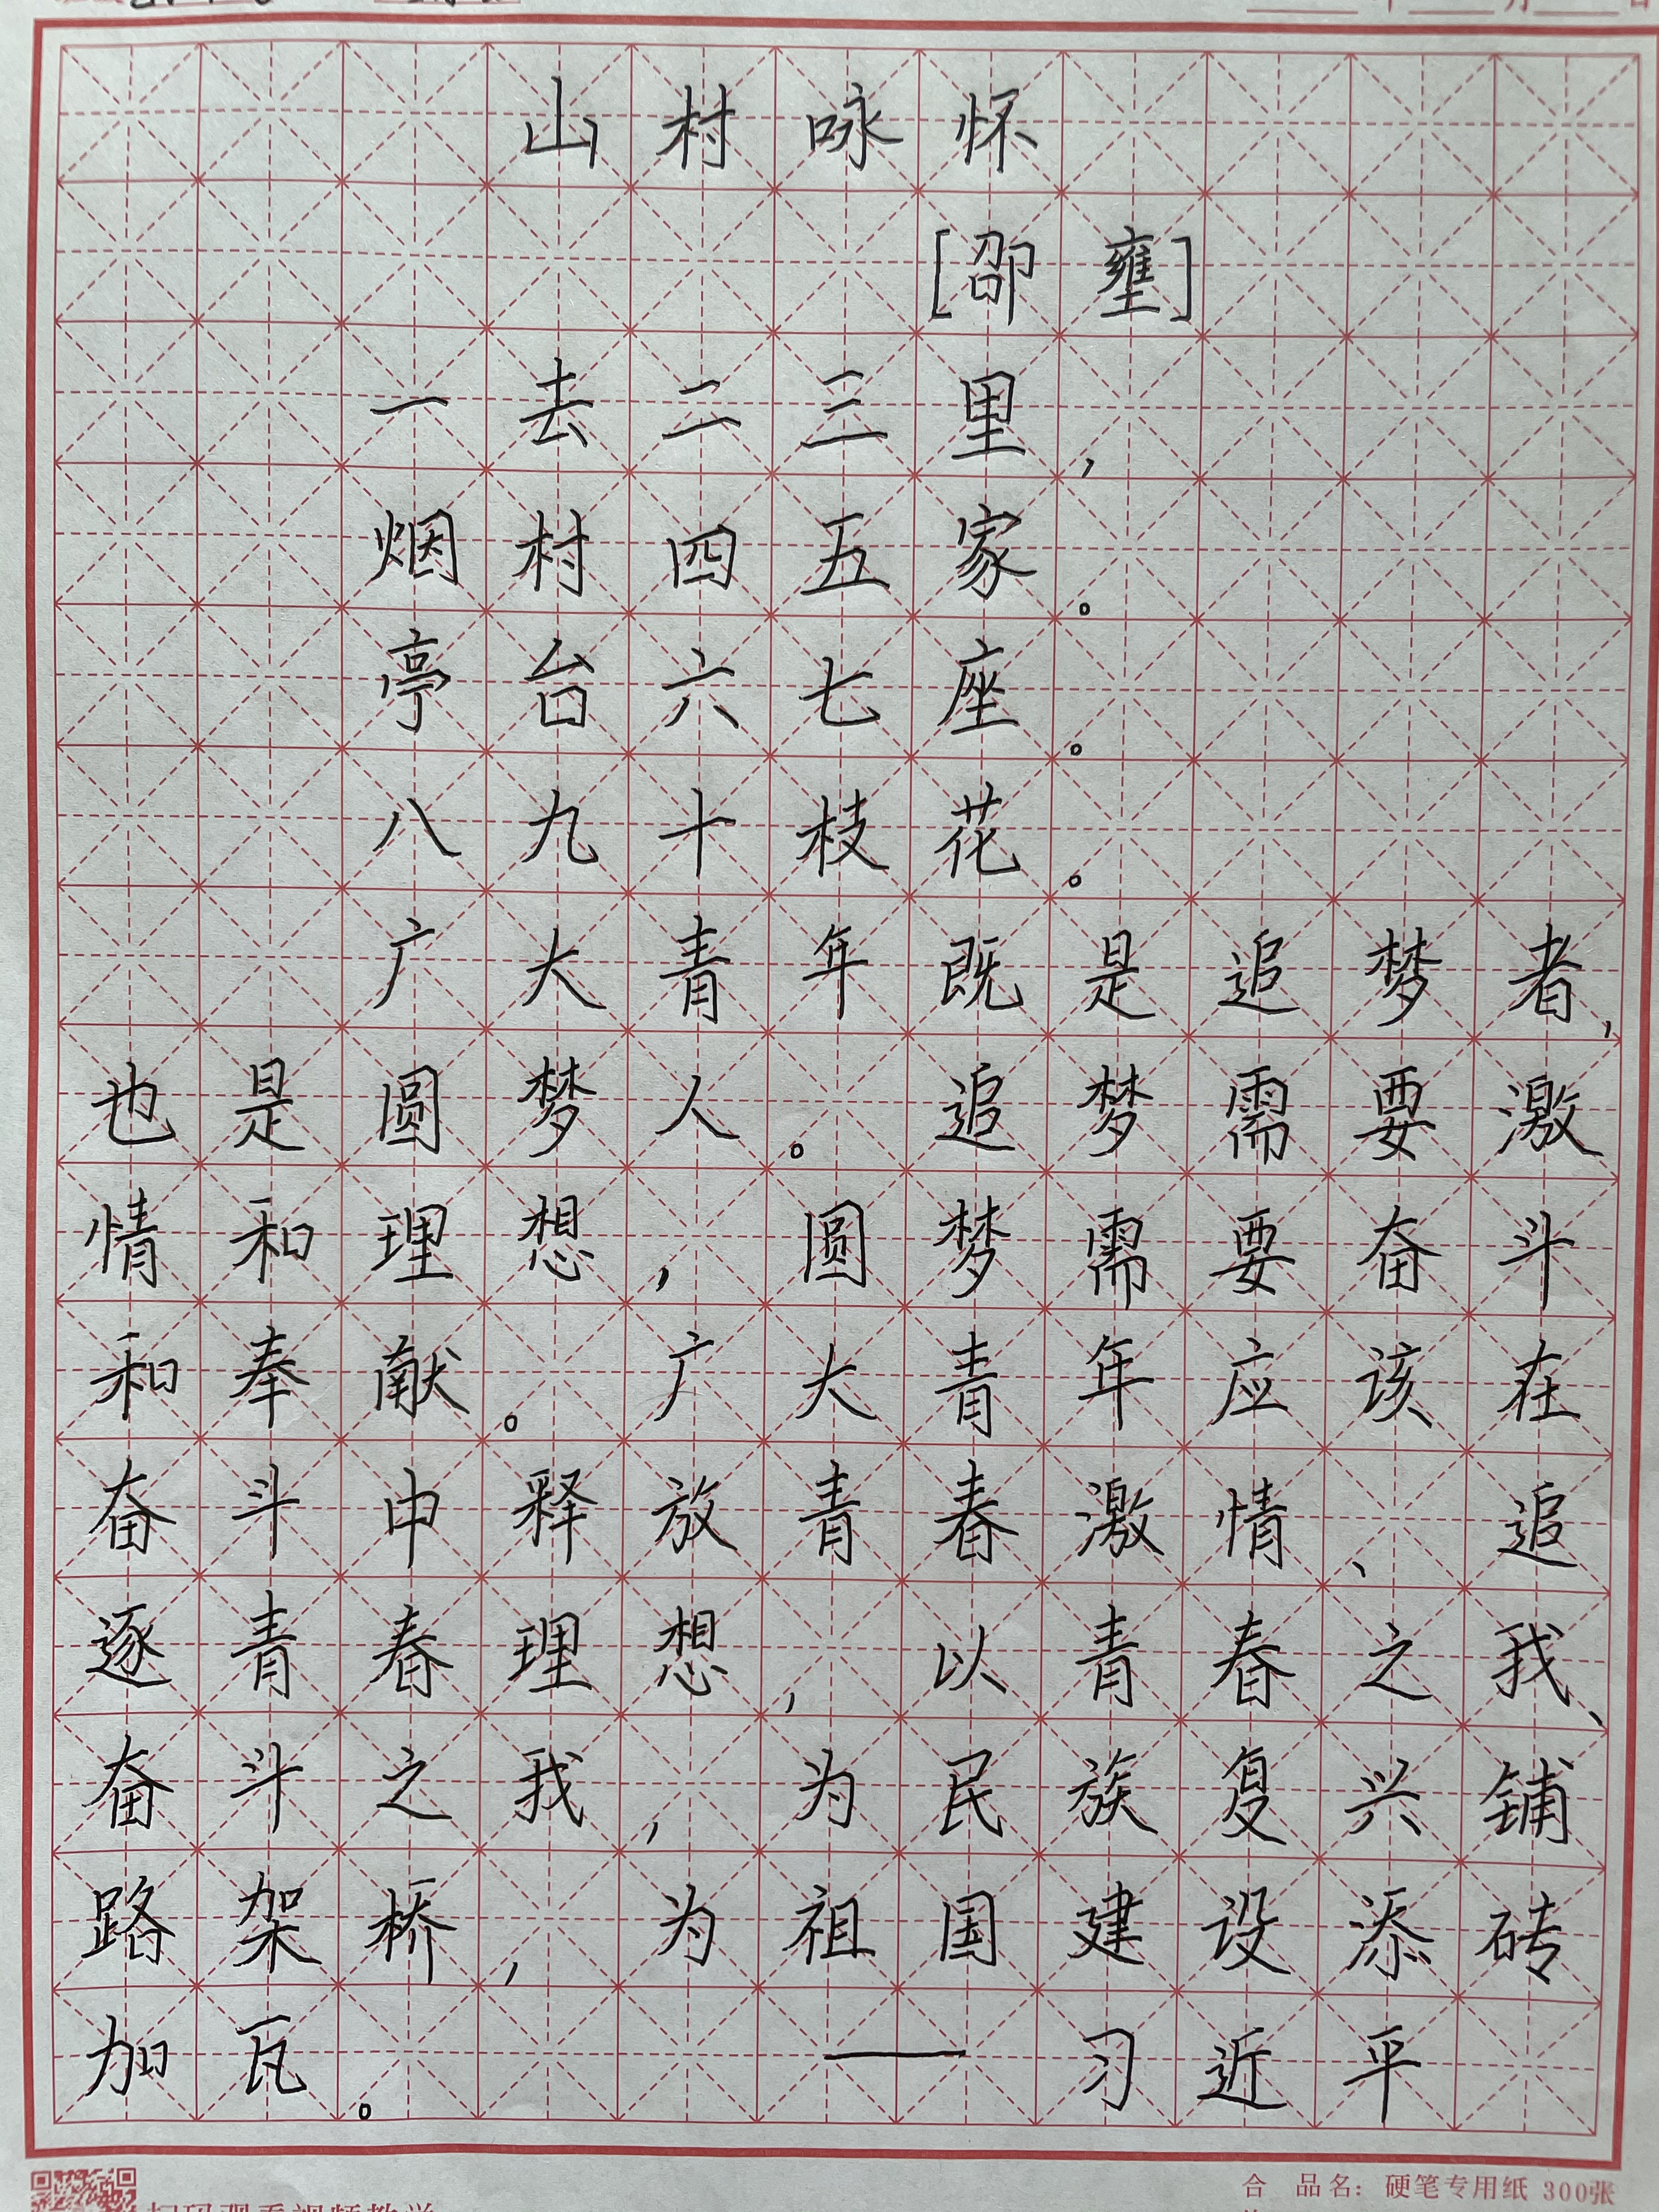 山村咏怀
[邵壅]
一去二三里，
烟村四五家。
亭台六七座。
八九十枝花。
广大青年既是追梦者，
也是圆梦人。追梦需要激
情和理想，圆梦需要奋斗
和奉献。广大青年应该在
奋斗中释放青春激情、追
逐青春理想，以青春之我、
奋斗之我，为民族复兴铺
路架桥，为祖国建设添砖
加瓦。 —习近平
合 品名：硬笔专用纸 300张